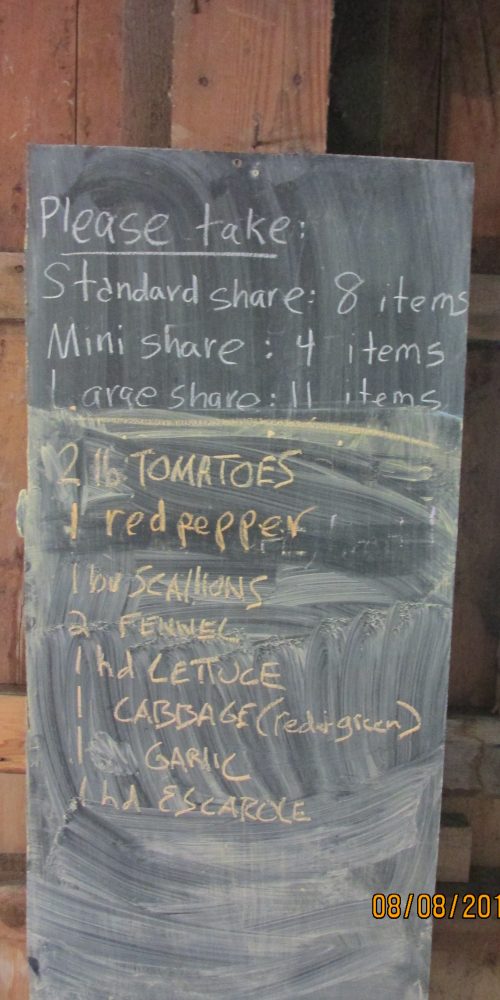 Please take:
Standard share: 8 items
Mini share: 4 items
Large share: 11 items
2 lb TOMATOES
1 red pepper
1 bu SCALLIONS
2 FENNEL
1 hd LETTUCE
1 CABBAGE (red or green)
1 GARLIC
1 hd ESCAROLE
08/08/201